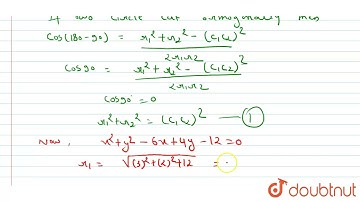 If two circle cut orthogonally then
Cos(180-90) = r₁²+r₂² - (C₁C₂)² / 2r₁r₂
Cos90 = r₁²+r₂² - (C₁C₂)² / 2r₁r₂
Cos90° = 0
r₁²+r₂² = (C₁C₂)² — ①
Now, x²+y²-6x+4y-12=0
r₁ = √(3)²+(2)²+12 =
doubtnut